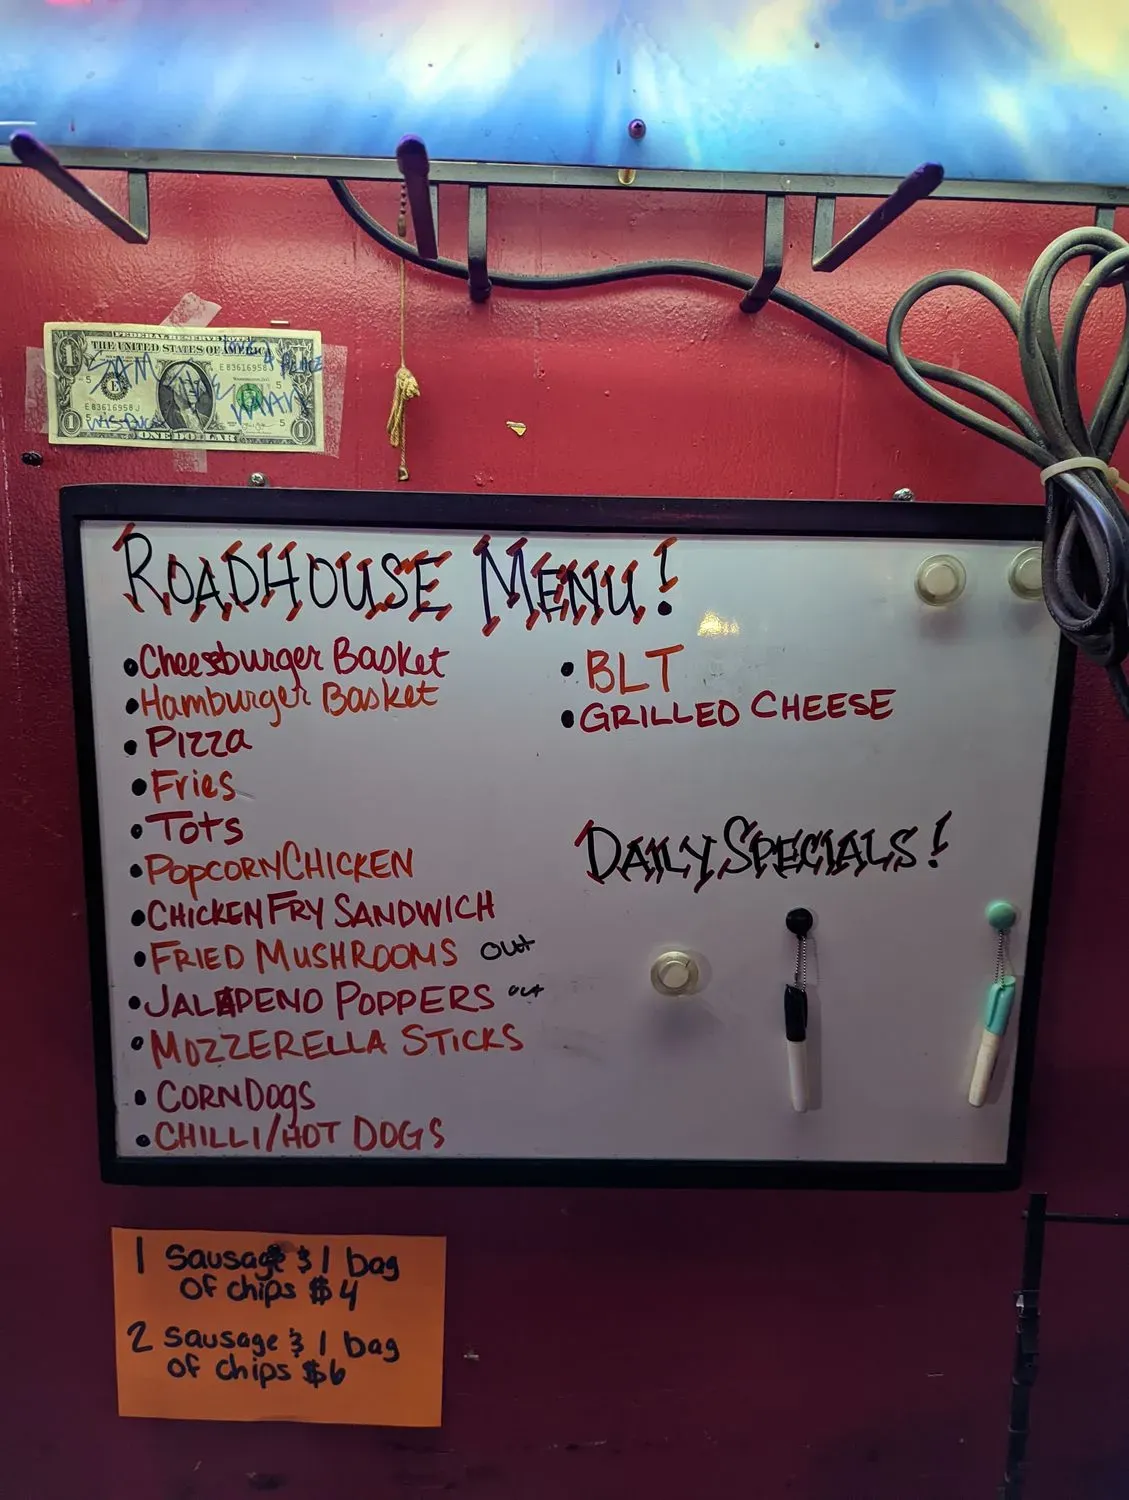 FEDERAL RESERVE NOTE
THE UNITED STATES OF AMERICA
E 83616958 J
E 83616958 J
SAM
ONE DOLLAR
ROADHOUSE MENU!
• Cheesburger Basket
• Hamburger Basket
• Pizza
• Fries
• Tots
• POPCORN CHICKEN
• CHICKEN FRY SANDWICH
• FRIED MUSHROOMS OUT
• JALAPENO POPPERS OUT
• MOZZERELLA STICKS
• CORN DOGS
• CHILLI/HOT DOGS
• BLT
• GRILLED CHEESE
DAILY SPECIALS!
1 Sausage & 1 bag
of chips $4
2 sausage & 1 bag
of chips $6